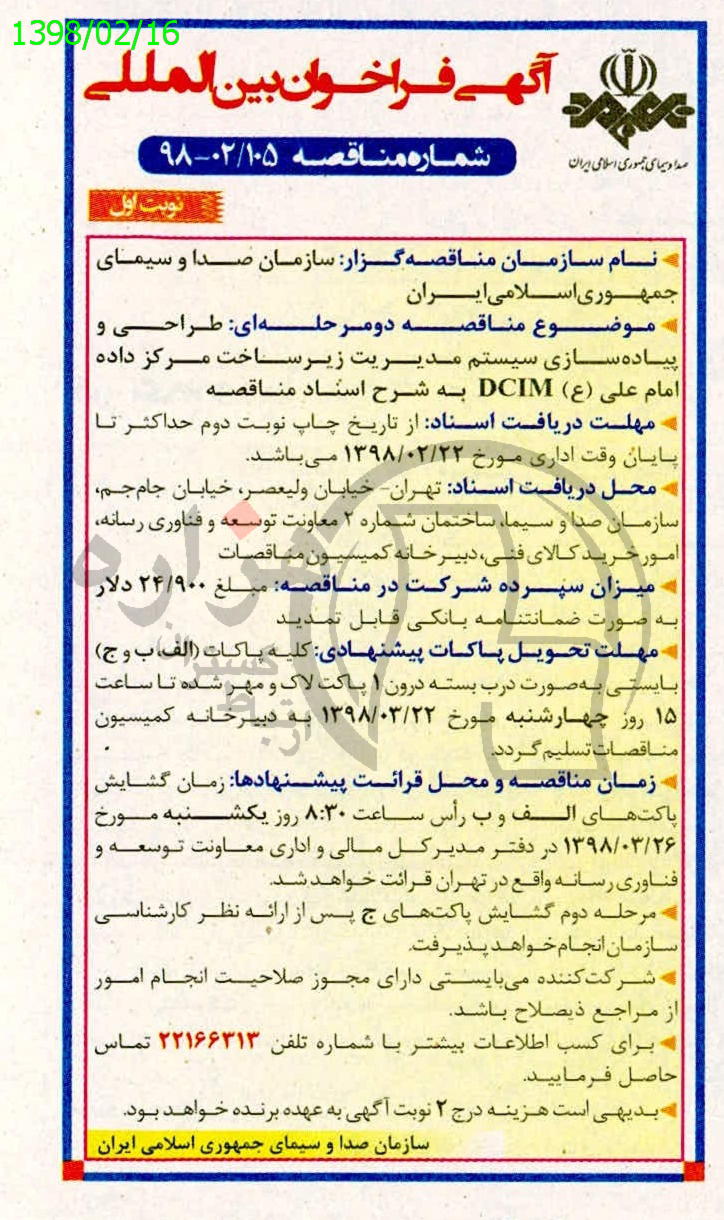 1398/02/16
آگهی فراخوان بین‌المللی
صدا و سیمای جمهوری اسلامی ایران
شماره مناقصه ۹۸-۰۲/۱۰۵
نوبت اول
نام سازمان مناقصه‌گزار: سازمان صدا و سیمای
جمهوری‌اسلامی‌ایران
موضوع مناقصه دومرحله‌ای: طراحی و
پیاده‌سازی سیستم مدیریت زیرساخت مرکز داده
امام علی (ع) DCIM به شرح اسناد مناقصه
مهلت دریافت اسناد: از تاریخ چاپ نوبت دوم حداکثر تا
پایان وقت اداری مورخ ۱۳۹۸/۰۲/۲۲ می‌باشد.
محل دریافت اسناد: تهران- خیابان ولیعصر، خیابان جام‌جم،
سازمان صدا و سیما، ساختمان شماره ۲ معاونت توسعه و فناوری رسانه،
امور خرید کالای فنی، دبیرخانه کمیسیون مناقصات
میزان سپرده شرکت در مناقصه: مبلغ ۲۴/۹۰۰ دلار
به صورت ضمانتنامه بانکی قابل تمدید
مهلت تحویل پاکات پیشنهادی: کلیه پاکات (الف، ب و ج)
بایستی به‌صورت درب بسته درون ۱ پاکت لاک و مهر شده تا ساعت
۱۵ روز چهارشنبه مورخ ۱۳۹۸/۰۳/۲۲ به دبیرخانه کمیسیون
مناقصات تسلیم گردد.
زمان مناقصه و محل قرائت پیشنهادها: زمان گشایش
پاکت‌های الف و ب رأس ساعت ۸:۳۰ روز یکشنبه مورخ
۱۳۹۸/۰۳/۲۶ در دفتر مدیرکل مالی و اداری معاونت توسعه و
فناوری رسانه واقع در تهران قرائت خواهد شد.
مرحله دوم گشایش پاکت‌های ج پس از ارائه نظر کارشناسی
سازمان انجام خواهد پذیرفت.
شرکت‌کننده می‌بایستی دارای مجوز صلاحیت انجام امور
از مراجع ذیصلاح باشد.
برای کسب اطلاعات بیشتر با شماره تلفن ۲۲۱۶۶۳۱۳ تماس
حاصل فرمایید.
بدیهی است هزینه درج ۲ نوبت آگهی به عهده برنده خواهد بود.
سازمان صدا و سیمای جمهوری اسلامی ایران
هزاره